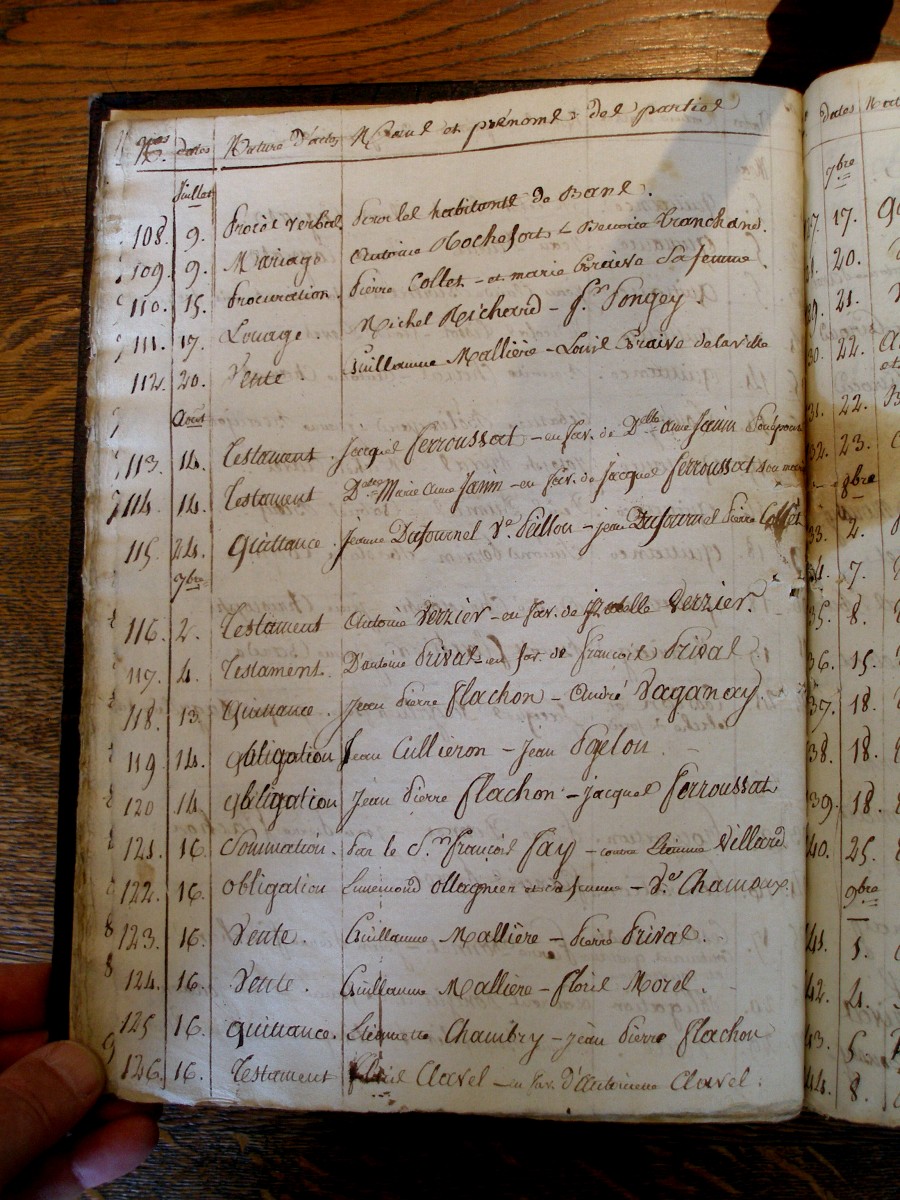 N.os dates Nature d'actes Noms et prénoms des parties
Juillet
108. 9. Procès verbal. Par les habitants de Bans.
109. 9. Mariage Antoine Rochefort & Benoite Tranchand.
110. 15. Procuration. Pierre Collet - et marie Grieve Sa femme.
111. 17. Louage. Michel Richard - S.r Pongey.
112. 20. Vente. Guillaume Mallière - Louis delaville
Aoust
113. 14. Testament. Jacques Ferroussat - en fav. de D.elle anne Janin
114. 14. Testament D.elle Marie anne Janin - en fav. de jacques Ferroussat son mari
115. 24. Quittance. Jeanne Dufournel V.e Peillon - jean Dufournel Pierre Collet
7bre
116. 2. Testament Antoine Verzier - en fav. de Verzier.
117. 4. Testament. D'antoine Prival - en fav. de francois Prival
118. 13. Quittance. Jean Pierre flachon - André Vaganay.
119 14. obligation Jean Cullieron - Jean
120 14 obligation Jean Pierre flachon - jacques ferroussat
121. 16. Sommation. Par le S.r françois fay - contre Villard
122. 16. obligation Ennemond Ollagnier et sa femme - V.e Chamoux.
123. 16. Vente. Guillaume Mallière - Pierre Prival.
124. 16. Vente. Guillaume Mallière - floris Morel.
125 16. quittance. Etiennette Chambry - jean Pierre flachon
126. 16. Testament Clavel - en fav. d'Antoinene Clavel.
dates
7bre
17.
20.
21.
22.
22.
23.
8bre
2.
7.
8.
15.
18.
18.
18.
25.
9bre
1.
4.
5.
8.